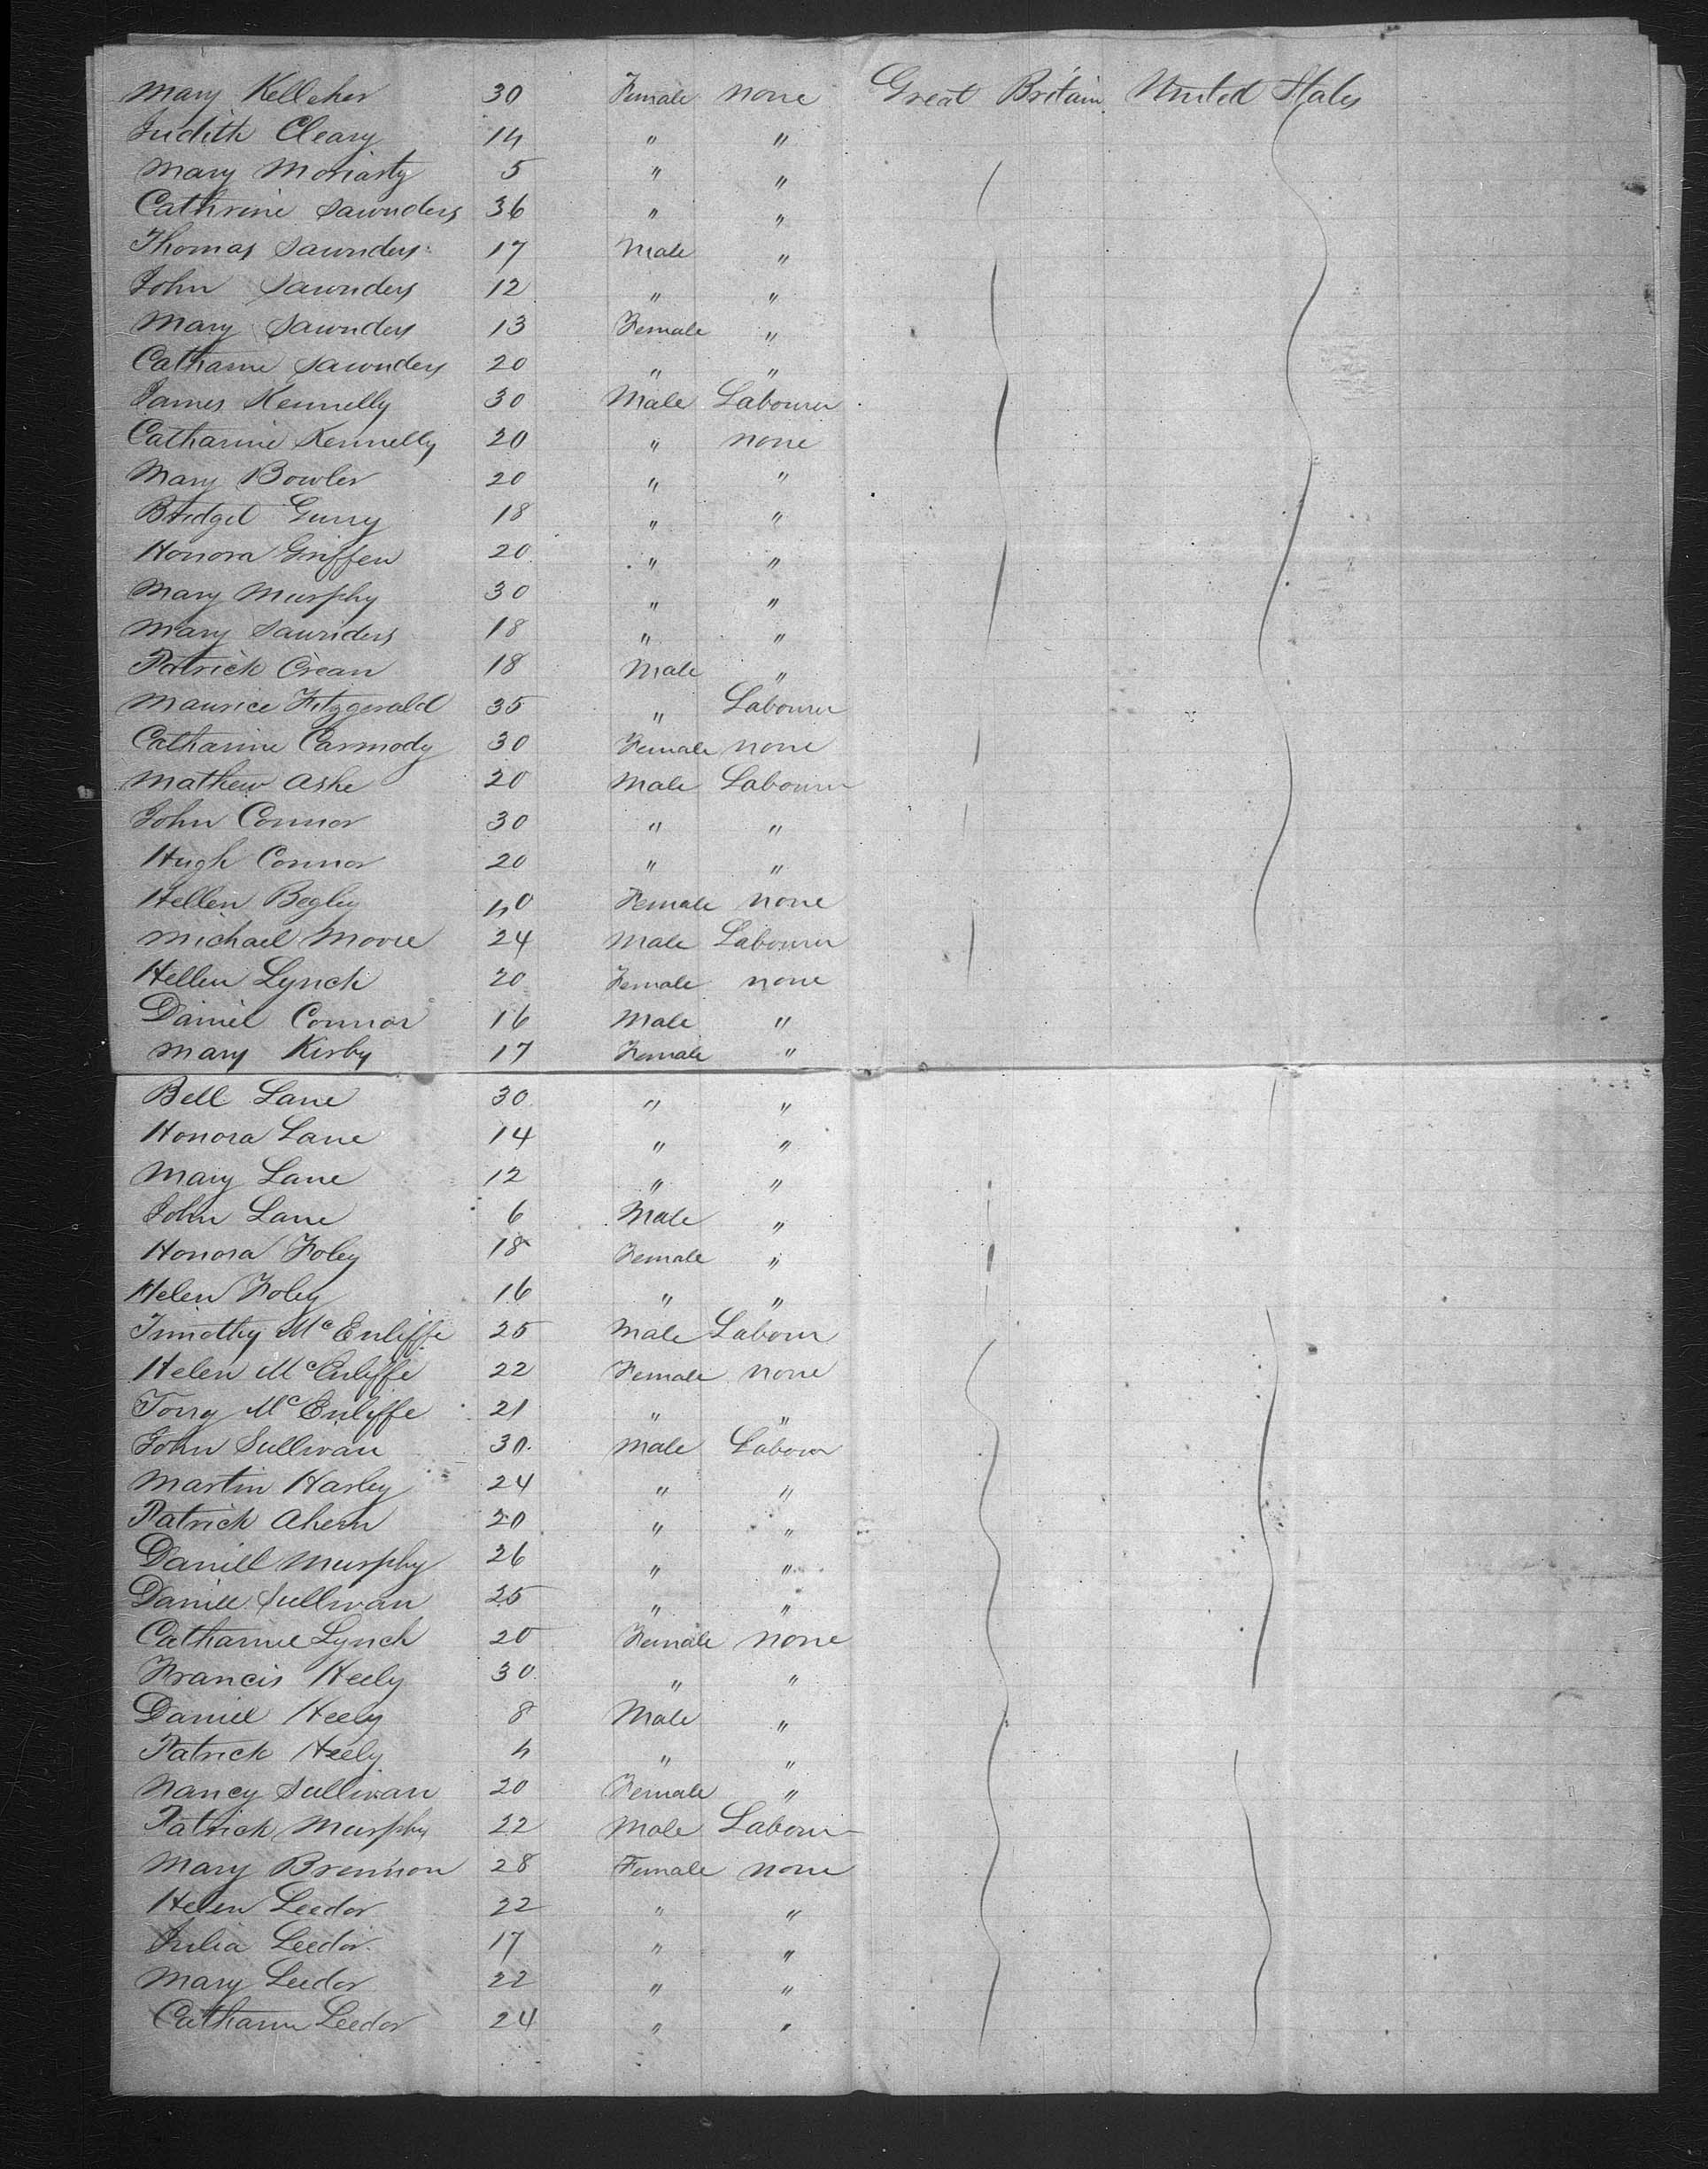 Mary Kelleher 30 Female none Great Britain United States
Judith Cleary 14 " "
Mary Moriarty 5 " "
Cathrine Sawnders 36 " "
Thomas Sawnders 17 Male "
John Sawnders 12 " "
Mary Sawnders 13 Female "
Catharine Sawnders 20 " "
James Kennelly 30 Male Labourer
Catharine Kennelly 20 " none
Mary Bowler 20 " "
Bridget Gurry 18 " "
Honora Griffen 20 " "
Mary Murphy 30 " "
Mary Saunders 18 " "
Patrick Crean 18 Male "
Maurice Fitzgerald 35 " Labourer
Catharine Carmody 30 Female none
Mathew Ashe 20 Male Labourer
John Connor 30 " "
Hugh Connor 20 " "
Hellen Begley 40 Female none
Michael Moore 24 Male Labourer
Hellen Lynch 20 Female none
Daniel Connor 16 Male "
Mary Kirby 17 Female "
Bell Lane 30 " "
Honora Lane 14 " "
Mary Lane 12 " "
John Lane 6 Male "
Honora Foley 18 Female "
Helen Foley 16 " "
Timothy McEnliffe 25 Male Labour
Helen McEnliffe 22 Female none
Torry McEnliffe 21 " "
John Sullivan 30 Male Labour
Martin Harley 24 " "
Patrick Ahern 20 " "
Daniell Murphy 26 " "
Daniel Sullivan 25 " "
Catharine Lynch 20 Female none
Francis Heely 30 " "
Daniel Heely 8 Male "
Patrick Heely 4 " "
Nancy Sullivan 20 Female "
Patrick Murphy 22 Male Labour
Mary Brennon 28 Female none
Helen Leedor 22 " "
Julia Leedor 17 " "
Mary Leedor 22 " "
Catharin Leedor 24 " "